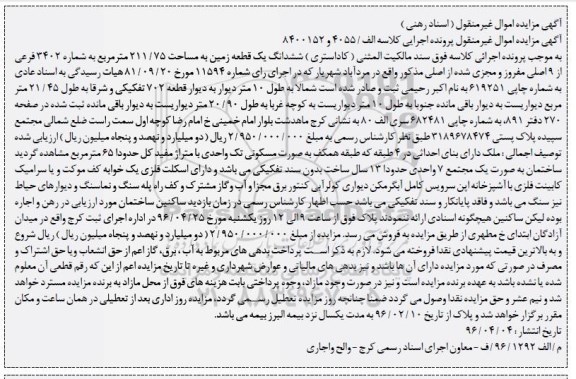 آگهی مزایده اموال غیرمنقول (اسناد رهنی)
آگهی مزایده اموال غیرمنقول پرونده اجرایی کلاسه الف/۴۰۵۵ و ۸۴۰۰۱۵۲
به موجب پرونده اجرائی کلاسه فوق سند مالکیت المثنی (کاداستری) ششدانگ یک قطعه زمین به مساحت ۲۱۱/۷۵ مترمربع به شماره ۳۴۰۲ فرعی
از ۹ اصلی مفروز و مجزی شده از اصلی مذکور واقع در مردآباد شهریار که در اجرای رای شماره ۱۱۵۹۴ مورخ ۸۱/۰۹/۲۰ هیات رسیدگی به اسناد عادی
به شماره چاپی ۶۱۹۲۵۱ به نام اکبر رحیمی ثبت و صادر شده است شمالا به طول ۱۰ متر دیوار به دیوار قطعه ۷۰۲ تفکیکی و شرقا به طول ۲۱/۴۵ متر
مربع دیواریست به دیوار باقی مانده جنوبا به طول ۱۰ متر دیواریست به کوچه غربا به طول ۲۰/۹۰ متر دیواریست به دیوار باقی مانده ثبت شده در صفحه
۲۷۰ دفتر ۸۹۱ به شماره چاپی ۶۸۲۴۸۱ سری الف ۸۰ به نشانی کرج ماهدشت بلوار امام خمینی خ امام رضا کوچه اول سمت راست ضلع شمالی مجتمع
سپیده پلاک پستی ۳۱۸۹۶۷۸۴۷۴ طبق نظر کارشناس رسمی به مبلغ ۲/۹۵۰/۰۰۰/۰۰۰ ریال (دو میلیارد و نهصد و پنجاه میلیون ریال) ارزیابی شده
توصیف اجمالی: ملک دارای بنای احداثی در ۴ طبقه که طبقه همکف به صورت مسکونی تک واحدی با متراژ مفید کل حدودا ۶۵ مترمربع مشاهده گردید
ساختمان به صورت یک مجتمع ۷ واحدی حدودا ۱۳ سال ساخت بدون سند تفکیکی می باشد و دارای اسکلت فلزی یک خوابه کف موکت و یا سرامیک
کابینت فلزی با آشپزخانه اپن سرویس کامل آبگرمکن دیواری کولر آبی کنتور برق مجزا و آب وگاز مشترک و کف راه پله سنگ و نماسنگ و دیوارهای حیاط
نیز سنگ می باشد و فاقد پایانکار و سند تفکیکی می باشد حسب اظهار کارشناس رسمی در زمان بازدید ساکنین ساختمان مورد ارزیابی در رهن و اجاره
بوده لیکن ساکنین هیچگونه اسنادی ارائه ننمودند پلاک فوق از ساعت ۹ الی ۱۲ روز یکشنبه مورخ ۹۶/۰۴/۲۵ در اداره اجرای ثبت کرج واقع در میدان
آزادگان ابتدای خ مطهری از طریق مزایده به فروش می رسد. مزایده از مبلغ ۲/۹۵۰/۰۰۰/۰۰۰ (دو میلیارد و نهصد و پنجاه میلیون ریال) ریال شروع
و به بالاترین قیمت پیشنهادی نقدا فروخته می شود. لازم به ذکر است پرداخت بدهی های مربوط به آب، برق، گاز اعم از حق انشعاب و یا حق اشتراک و
مصرف در صورتی که مورد مزایده دارای آن ها باشد و نیز بدهی های مالیاتی و عوارض شهرداری و غیره تا تاریخ مزایده اعم از این که رقم قطعی آن معلوم
شده یا نشده باشد به عهده برنده مزایده است و نیز در صورت وجود مازاد، وجوه پرداختی بابت هزینه های فوق از محل مازاد به برنده مزایده مسترد خواهد
شد و نیم عشر و حق مزایده نقدا وصول می گردد ضمنا چنانچه روز مزایده تعطیل رسمی گردد، مزایده روز اداری بعد از تعطیلی در همان ساعت و مکان
مقرر برگزار خواهد شد و پلاک از تاریخ ۹۶/۰۲/۱۰ به مدت یکسال نزد بیمه البرز بیمه می باشد.
تاریخ انتشار: ۹۶/۰۴/۰۴
م/الف ۹۶/۱۲۹۲/ف - معاون اجرای اسناد رسمی کرج - والح واجاری